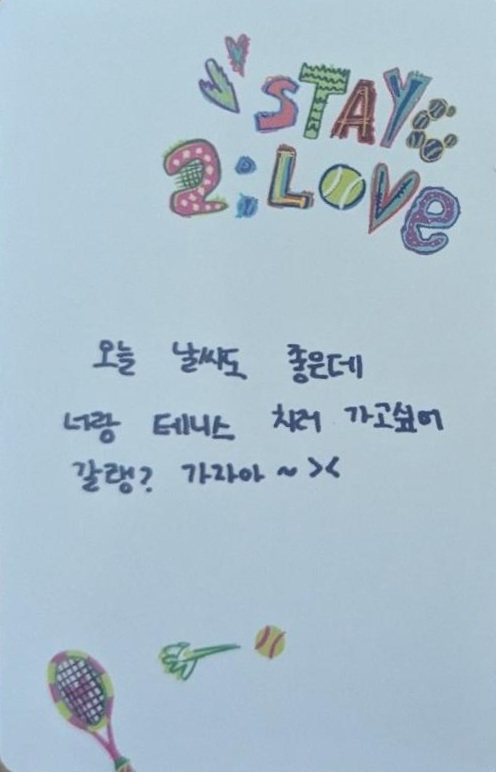 STAY
2:LOVE
오늘 날씨도 좋은데
너랑 테니스 치러 가고싶어
갈랭? 가자아 ~ ><